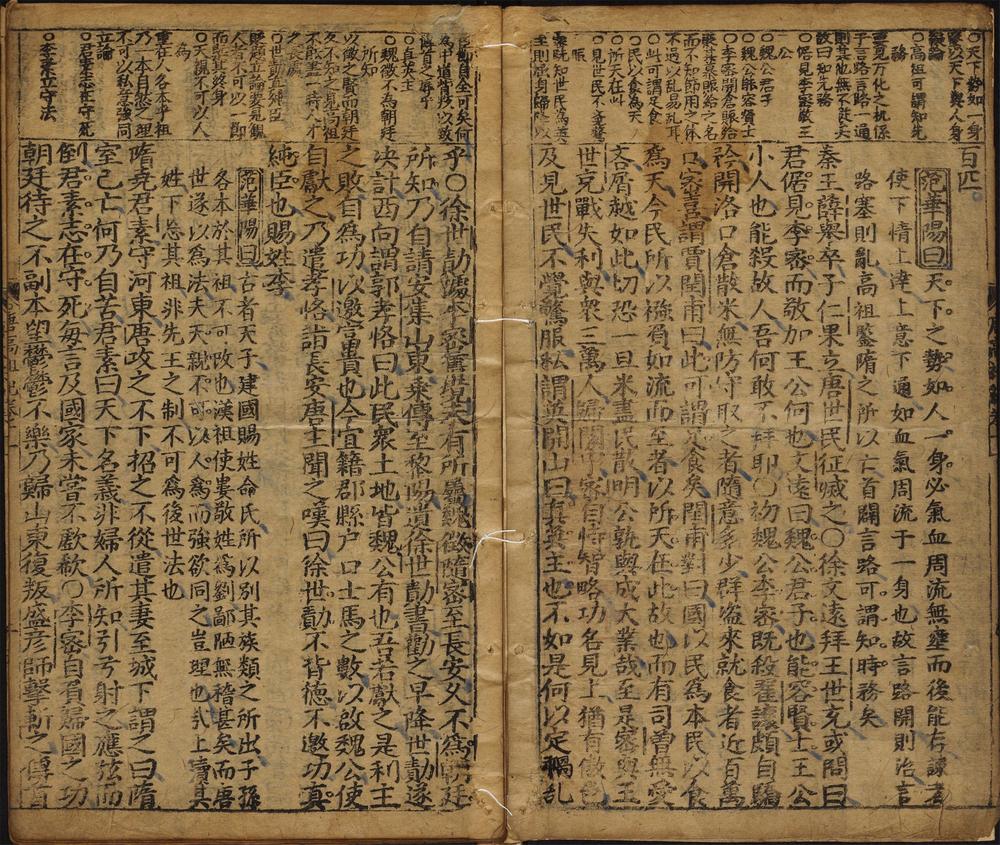 ○天下勢如一身
○高祖可謂知先
務
○倨見李密敬王
公
○魏公君子
○魏公能容賢士
○李密開倉賑給
不過以亂易亂耳
○此可謂足食
○民以食爲天
○所天在此
○見世民不覺驚
服
百匹○
范華陽曰天下之勢如人一身必氣血周流無壅而後能存諫者
使下情上達上意下通如血氣周流于一身也故言路開則治言
路塞則亂高祖鑒隋之所以亡首闢言路可謂知時務矣
秦王薛舉卒子仁果立唐世民征滅之○徐文遠拜王世充或問曰
君倨見李密而敬加王公何也文遠曰魏公君子也能容賢士王公
小人也能殺故人吾何敢不拜耶○初魏公李密既殺翟讓頗自驕
矜開洛口倉散米無防守取之者隨意多少群盜來就食者近百萬
口密喜謂賈閏甫曰此可謂足食矣閏甫對曰國以民爲本民以食
爲天今民所以襁負如流而至者以所天在此故也而有司曾無愛
吝屑越如此切恐一旦米盡民散明公孰與成大業哉至是密與王
世充戰失利與衆三萬人歸關中密自恃智略功名見上猶有傲色
及見世民不覺驚服私謂殷開山曰真英主也不如是何以定禍亂
○真英主
○魏徵不爲朝廷
所知
○天親不可以人
爲
重在人各本乎祖
乃一本自然之理
不可以私意強同
立論
○君素志在守死
乎○徐世勣據李密舊境未有所屬魏徵隨密至長安久不爲朝廷
所知乃自請安集山東乘傳至黎陽遺徐世勣書勸之早降世勣遂
决計西向謂郭孝恪曰此民衆土地皆魏公有也吾若獻之是利主
之敗自爲功以邀富貴也今宜籍郡縣户口士馬之數以啟魏公使
自獻之乃遣孝恪詣長安唐主聞之嘆曰徐世勣不背德不邀功真
純臣也賜姓李
范華陽曰古者天子建國賜姓命氏所以別其族類之所出子孫
各本於其祖不可改也漢祖使婁敬姓爲劉鄙陋無稽甚矣而唐
世遂以爲法夫天親不可以人爲而強欲同之豈理也哉上瀆其
姓下忘其祖非先王之制不可爲後世法也
隋堯君素守河東唐攻之不下招之不從遣其妻至城下謂之曰隋
室已亡何乃自苦君素曰天下名義非婦人所知引弓射之應弦而
倒君素志在守死每言及國家未嘗不歔欷○李密自負歸國之功
朝廷待之不副本望鬱鬱不樂乃歸山東復叛盛彦師擊斬之傳首